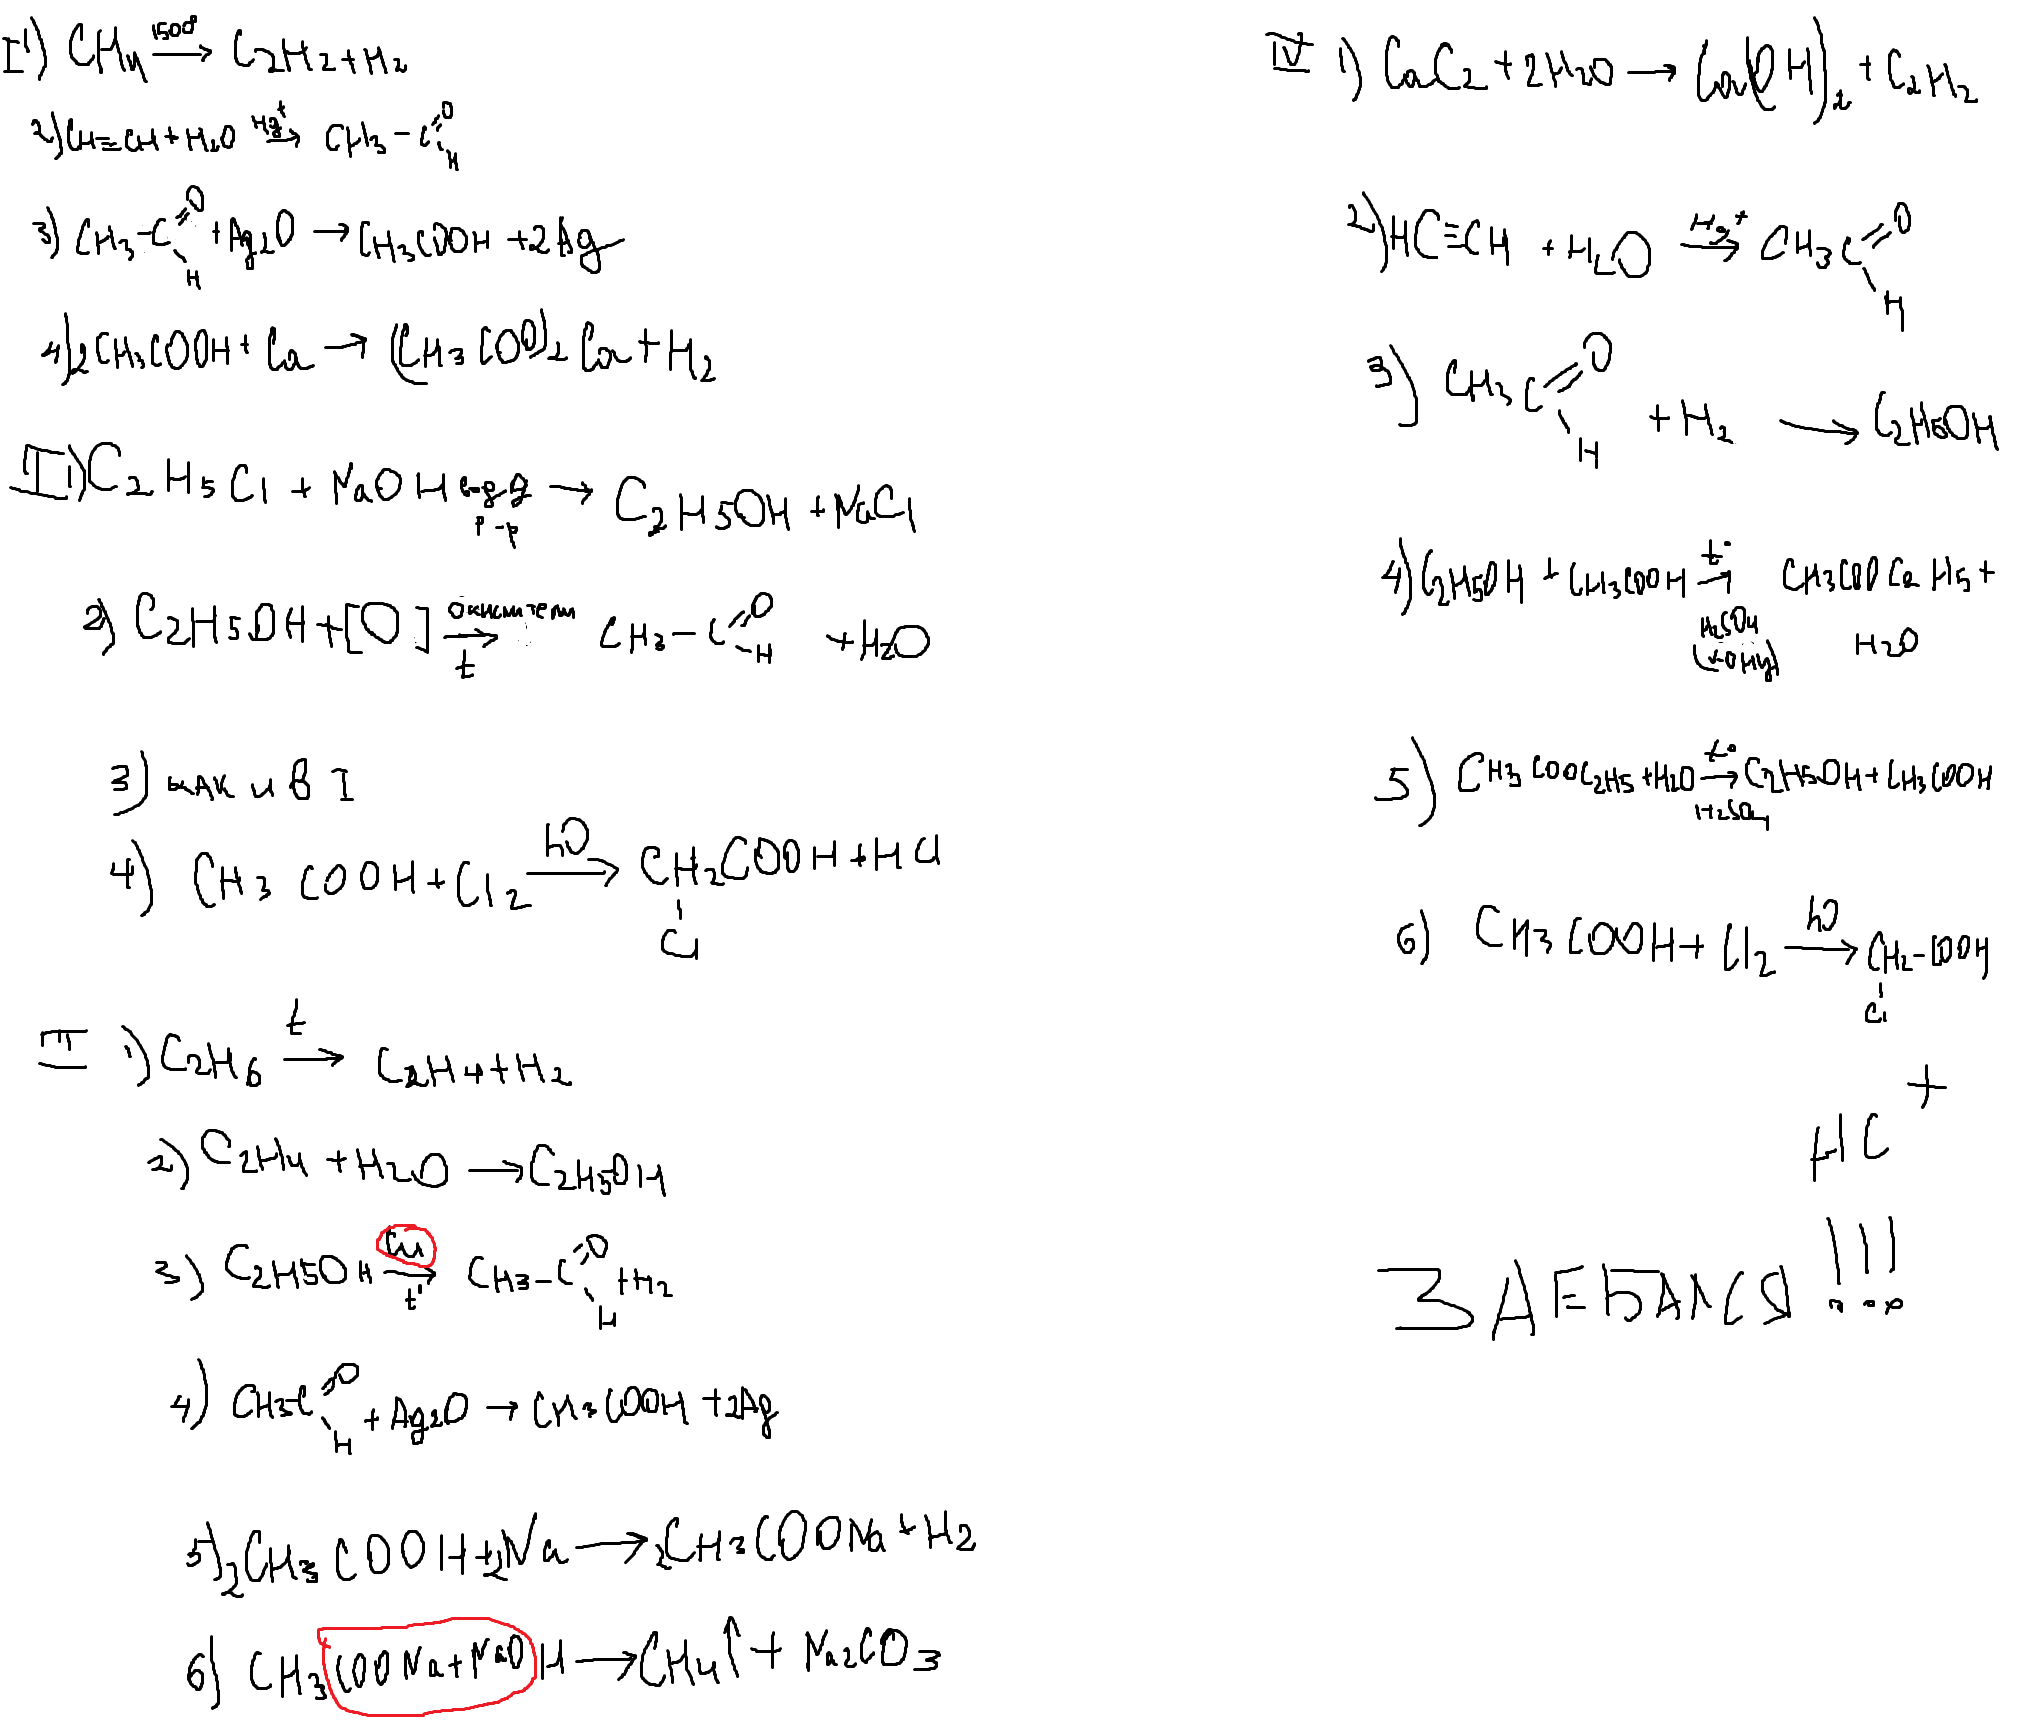 I 1) CH4 1500° → C2H2 + H2
2) CH≡CH + H2O Hg+ → CH3 – C=O H
3) CH3 – C=O H + Ag2O → CH3COOH + 2Ag
4) 2CH3COOH + Ca → (CH3COO)2 Ca + H2
II 1) C2H5Cl + NaOH → C2H5OH + NaCl
р-р
2) C2H5OH + [O] окислители t → CH3 – C=O – H + H2O
3) как и в I
4) CH3COOH + Cl2 hν → CH2COOH + HCl
Cl
III 1) C2H6 t → C2H4 + H2
2) C2H4 + H2O → C2H5OH
3) C2H5OH Cu t° → CH3 – C=O H + H2
4) CH3C=O H + Ag2O → CH3COOH + 2Ag
5) 2CH3COOH + 2Na → 2CH3COONa + H2
6) CH3COONa + NaOH → CH4↑ + Na2CO3
IV 1) CaC2 + 2H2O → Ca(OH)2 + C2H2
2) HC≡CH + H2O Hg+ → CH3C=O H
3) CH3C=O H + H2 → C2H5OH
4) C2H5OH + CH3COOH t° → CH3COOC2H5 +
H2SO4 H2O
5) CH3COOC2H5 + H2O t° → C2H5OH + CH3COOH
H2SO4
6) CH3COOH + Cl2 hν → CH2–COOH
Cl
+
HC
ЗАЕБАЛСЯ !!!